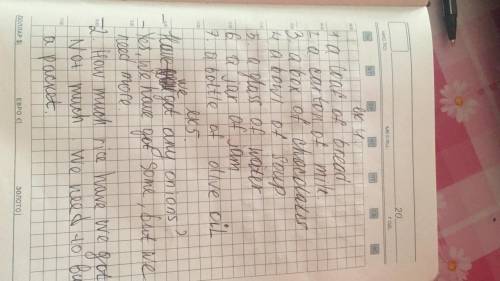 20
ex 4.
1 a loaf of bread
2 a carton of milk
3 a box of chocolates
4 a bowl of soup
5 a glass of water
6 a jar of jam
7 a bottle of olive oil
ex 5
- Have we got any onions?
- Yes, we have got some, but we
need more
- 2 How much rice have we got
Not much We need to bu
a packet.
ЕВРО €
ЗОЛОТО